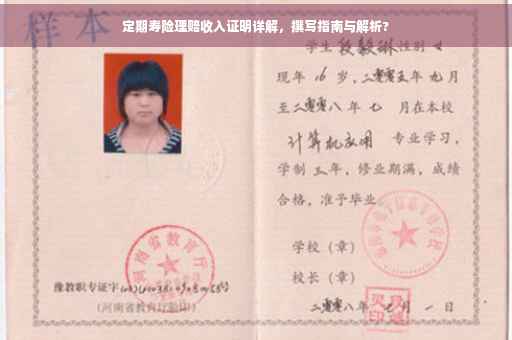 定期寿险理赔收入证明详解，撰写指南与解析？
样本
学生 段毅琳 性别 女
现年 16 岁，二零零五年 九月
至二零零八年 七 月在本校
计算机应用 专业学习，
学制 三 年，修业期满，成绩
合格，准予毕业
学校（章）
校长（章）
二零零八年 七 月 一 日
河南省教育厅
豫教职专证字
（河南省教育厅验印）